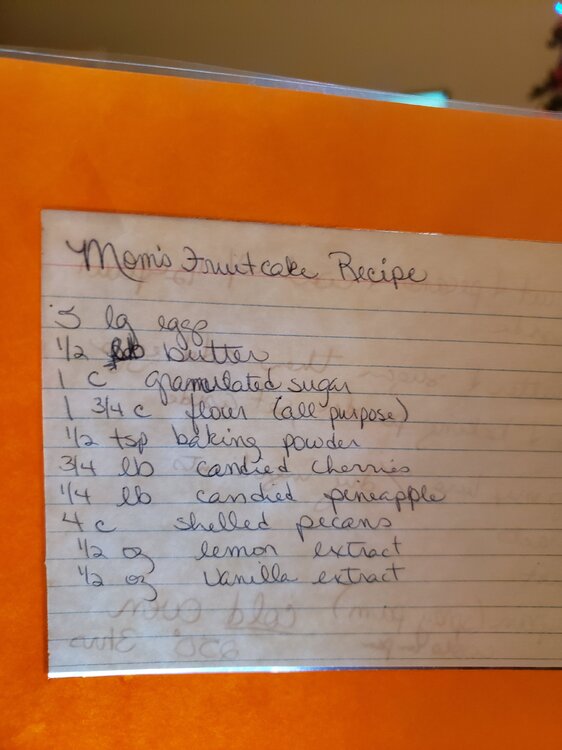 Mom's Fruitcake Recipe
5 lg eggs
1/2 butter
1 c granulated sugar
1 3/4 c flour (all purpose)
1/2 tsp baking powder
3/4 lb candied cherries
1/4 lb candied pineapple
4 c shelled pecans
1/2 oz lemon extract
1/2 oz vanilla extract